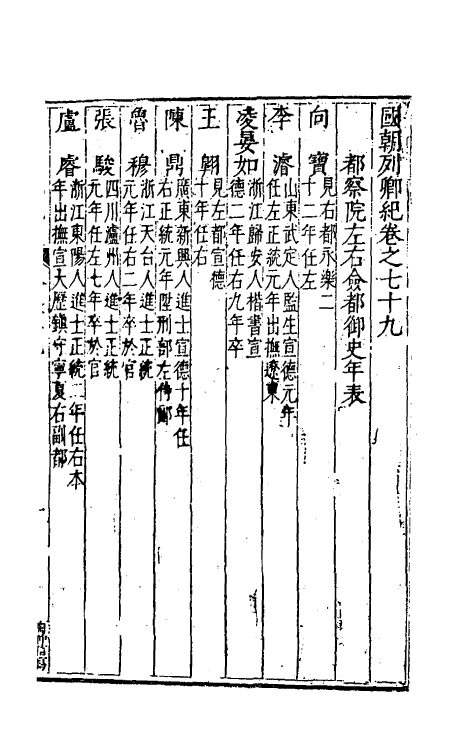 國朝列卿紀卷之七十九
都察院左右僉都御史年表
向寶 見右都永樂二
十二年任左
李濬 山東武定人監生宣德元年
任左正統元年出撫遼東
凌晏如 浙江歸安人楷書宣
德二年任右九年卒
王翱 見左都宣德
十年任右
陳鼎 廣東新興人進士宣德十年任
右正統元年陞刑部左侍郎
魯穆 浙江天台人進士正統
元年任右二年卒於官
張駿 四川瀘州人進士正統
元年任左七年卒於官
盧睿 浙江東陽人進士正統二年任右本
年出撫宣大歷鎮守寧夏右副都